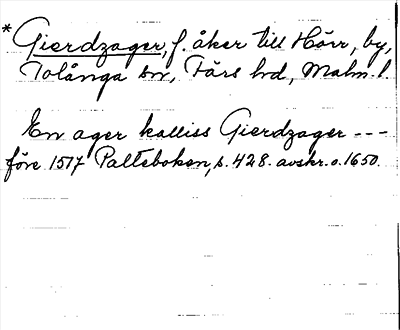 * Gierdzager, f. åker till Hörr, by,
Tolånga sn, Färs hd, Malm. l.
En ager kalliss Gierdzager ---
före 1517 Palteboken, s. 428. avskr. o. 1650.